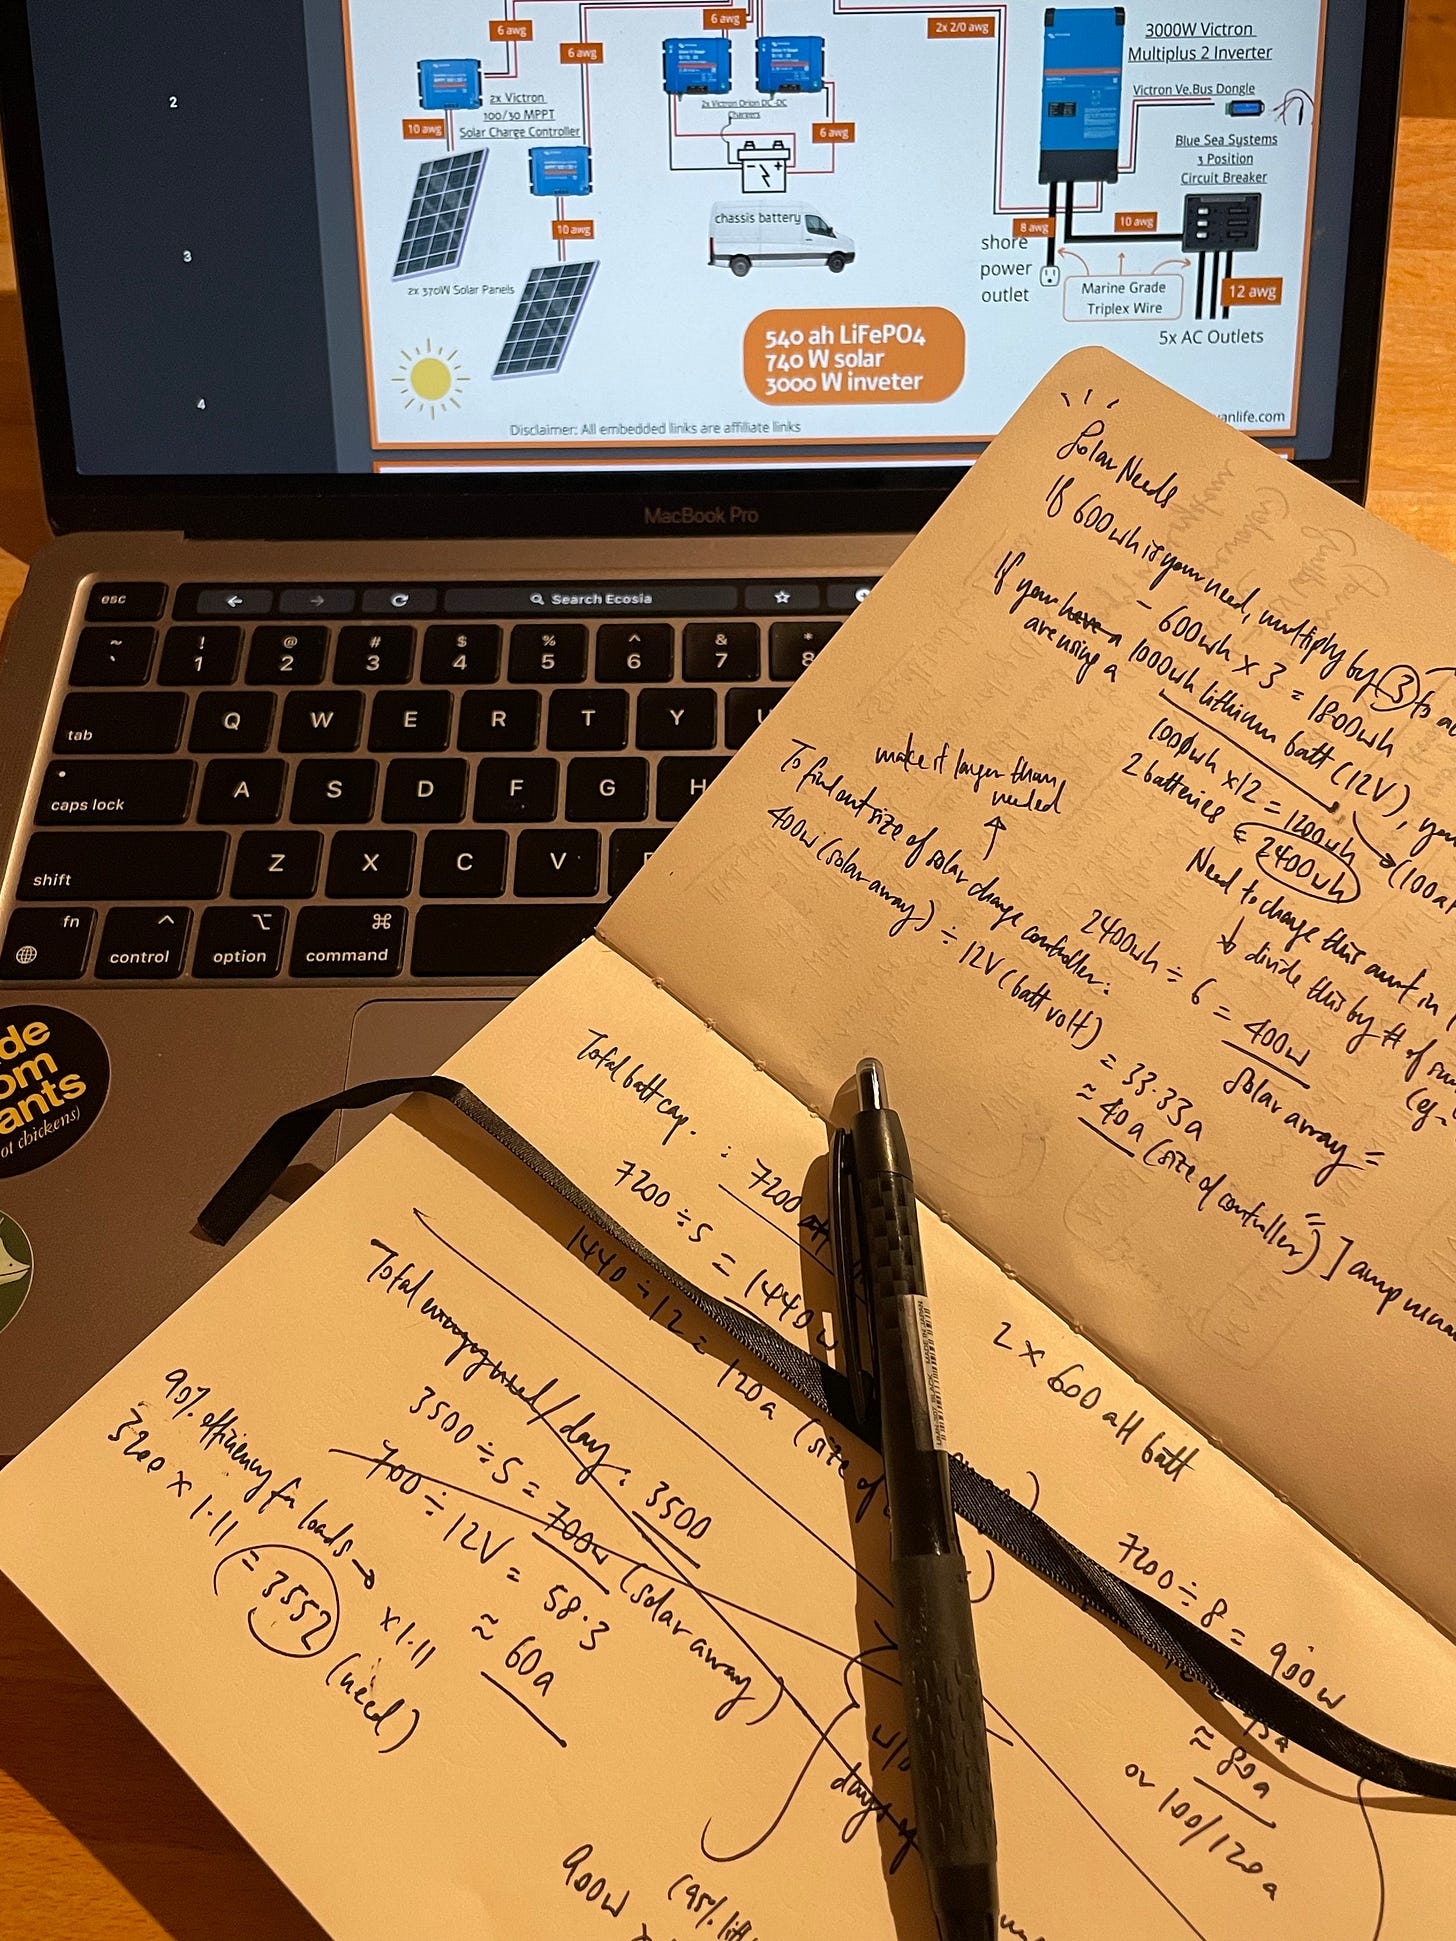 2
3
4
6 awg
6 awg
6 awg
2x 2/0 awg
2x Victron
100/30 MPPT
Solar Charge Controller
10 awg
10 awg
2x 370W Solar Panels
2x Victron Orion DC-DC
Chargers
6 awg
chassis battery
540 ah LiFePO4
740 W solar
3000 W inveter
3000W Victron
Multiplus 2 Inverter
Victron Ve.Bus Dongle
Blue Sea Systems
3 Position
Circuit Breaker
8 awg
10 awg
shore
power
outlet
Marine Grade
Triplex Wire
12 awg
5x AC Outlets
Disclaimer: All embedded links are affiliate links
vanlife.com
MacBook Pro
esc
Search Ecosia
~ ` ! 1 @ 2 # 3 $ 4 % 5 ^ 6 & 7 * 8
tab Q W E R T Y U
caps lock A S D F G H
shift Z X C V
fn control option command
de
om
ants
ot chickens)
Solar Needs
If 600wh is your need, multiply by 3 to
- 600wh x 3 = 1800wh
If your have a 1000wh lithium batt (12V), you
are using a
1000wh x 12 = 1200wh
2 batteries = 2400wh
(100aH
Need to charge this amt in
divide this by # of
2400wh ÷ 6 = 400w
solar array =
make it larger than
needed
To find out size of solar charge controller:
400w (solar array) ÷ 12V (batt volt) = 33.33a
≈ 40a (size of controller)
] amp
Total batt cap. : 7200
7200 ÷ 5 = 1440w
1440 ÷ 12 = 120a (size of
2 x 600aH batt
7200 ÷ 8 = 900w
≈ 80a
or 100/120a
Total energy used/day: 3500
3500 ÷ 5 = 700w (solar array)
700 ÷ 12V = 58.3
≈ 60a
w/o
days of
90% efficiency for loads → x 1.11
3200 x 1.11 = 3552 (need)
900w
(95%